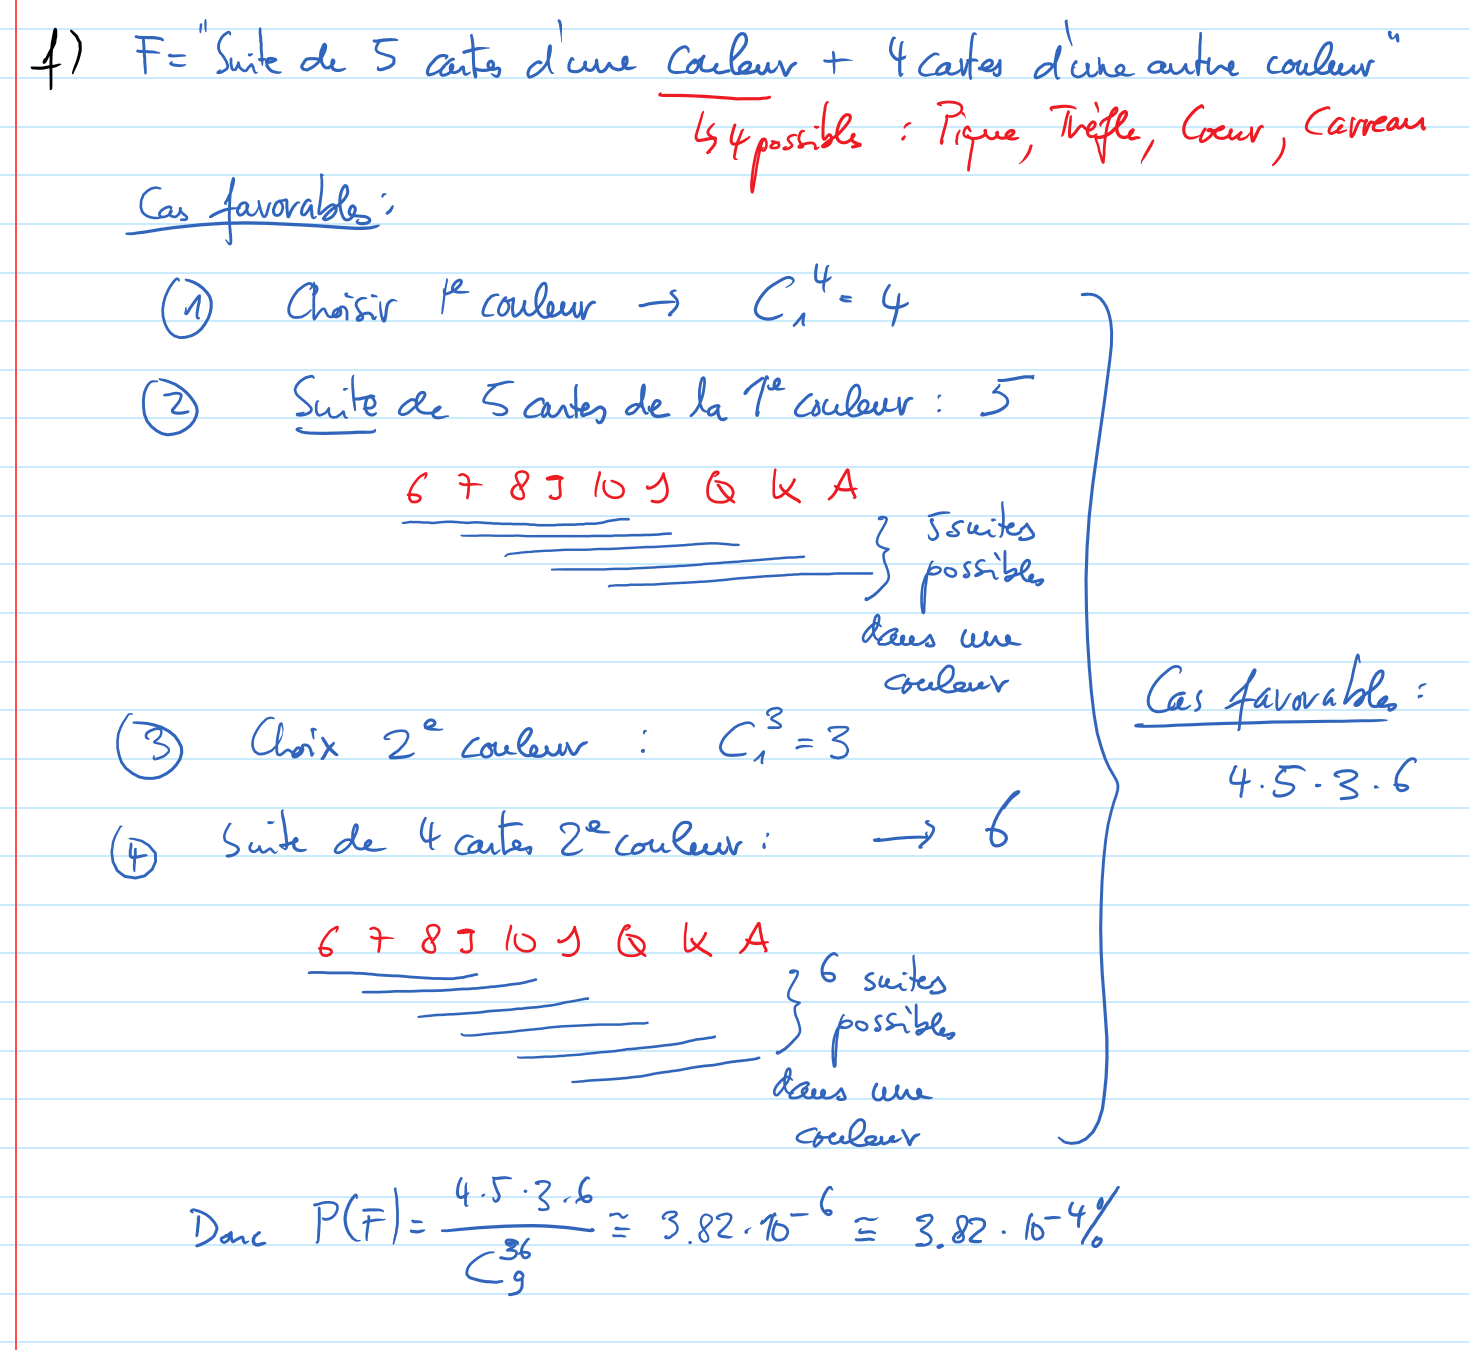 f) F = "Suite de 5 cartes d'une couleur + 4 cartes d'une autre couleur"
↳ 4 possibles : Pique, Trèfle, Coeur, Carreau
Cas favorables :
① Choisir 1e couleur → C₁⁴ = 4
② Suite de 5 cartes de la 1e couleur : 5
6 7 8 9 10 J Q K A
5 suites
possibles
dans une
couleur
③ Choix 2e couleur : C₁³ = 3
④ Suite de 4 cartes 2e couleur : → 6
6 7 8 9 10 J Q K A
6 suites
possibles
dans une
couleur
Cas favorables :
4.5.3.6
Donc P(F) = 4.5.3.6 / C₉³⁶ ≅ 3.82.10⁻⁶ ≅ 3.82.10⁻⁴%